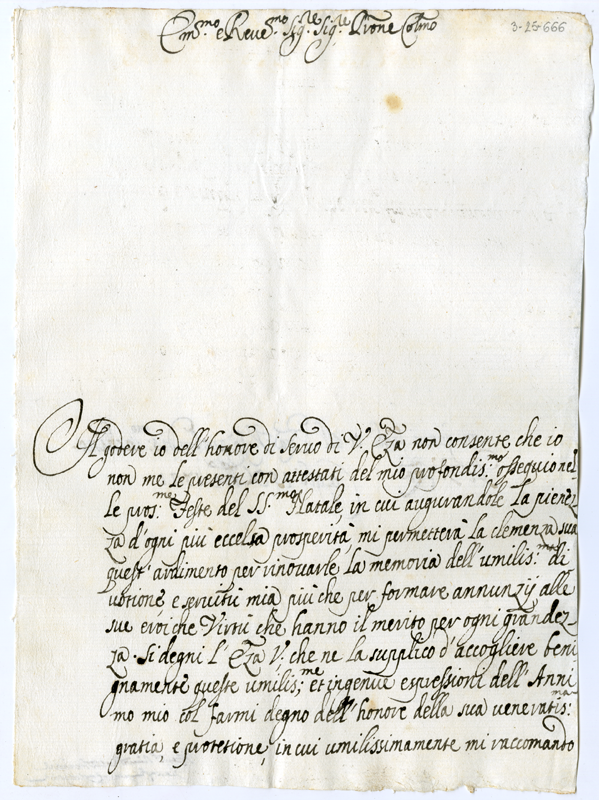 Em.mo e Reve.mo Sig.re Sig.re P'rone Col.mo
3-15-666
Il godere io dell'honore di servo di V. Eza non consente che io
non me le presenti con attestati del mio profondis.mo ossequio nel
le pros.me Feste del SS.mo Natale, in cui augurandole la pienez
za d'ogni più eccelsa prosperità, mi permetterà la clemenza sua
quest'ardimento per rinovarle la memoria dell'umilis.ma di
votione, e servitù mia più che per formare annunzij alle
sue eroiche Virtù che hanno il merito per ogni grandez
za. Si degni l'Eza V. che ne la supplico d'accogliere beni
gnamente queste umilis.me et ingenue espressioni dell'Anni
mo mio col farmi degno dell'honore della sua veneratis.ma
gratia, e protetione, in cui umilissimamente mi raccomando